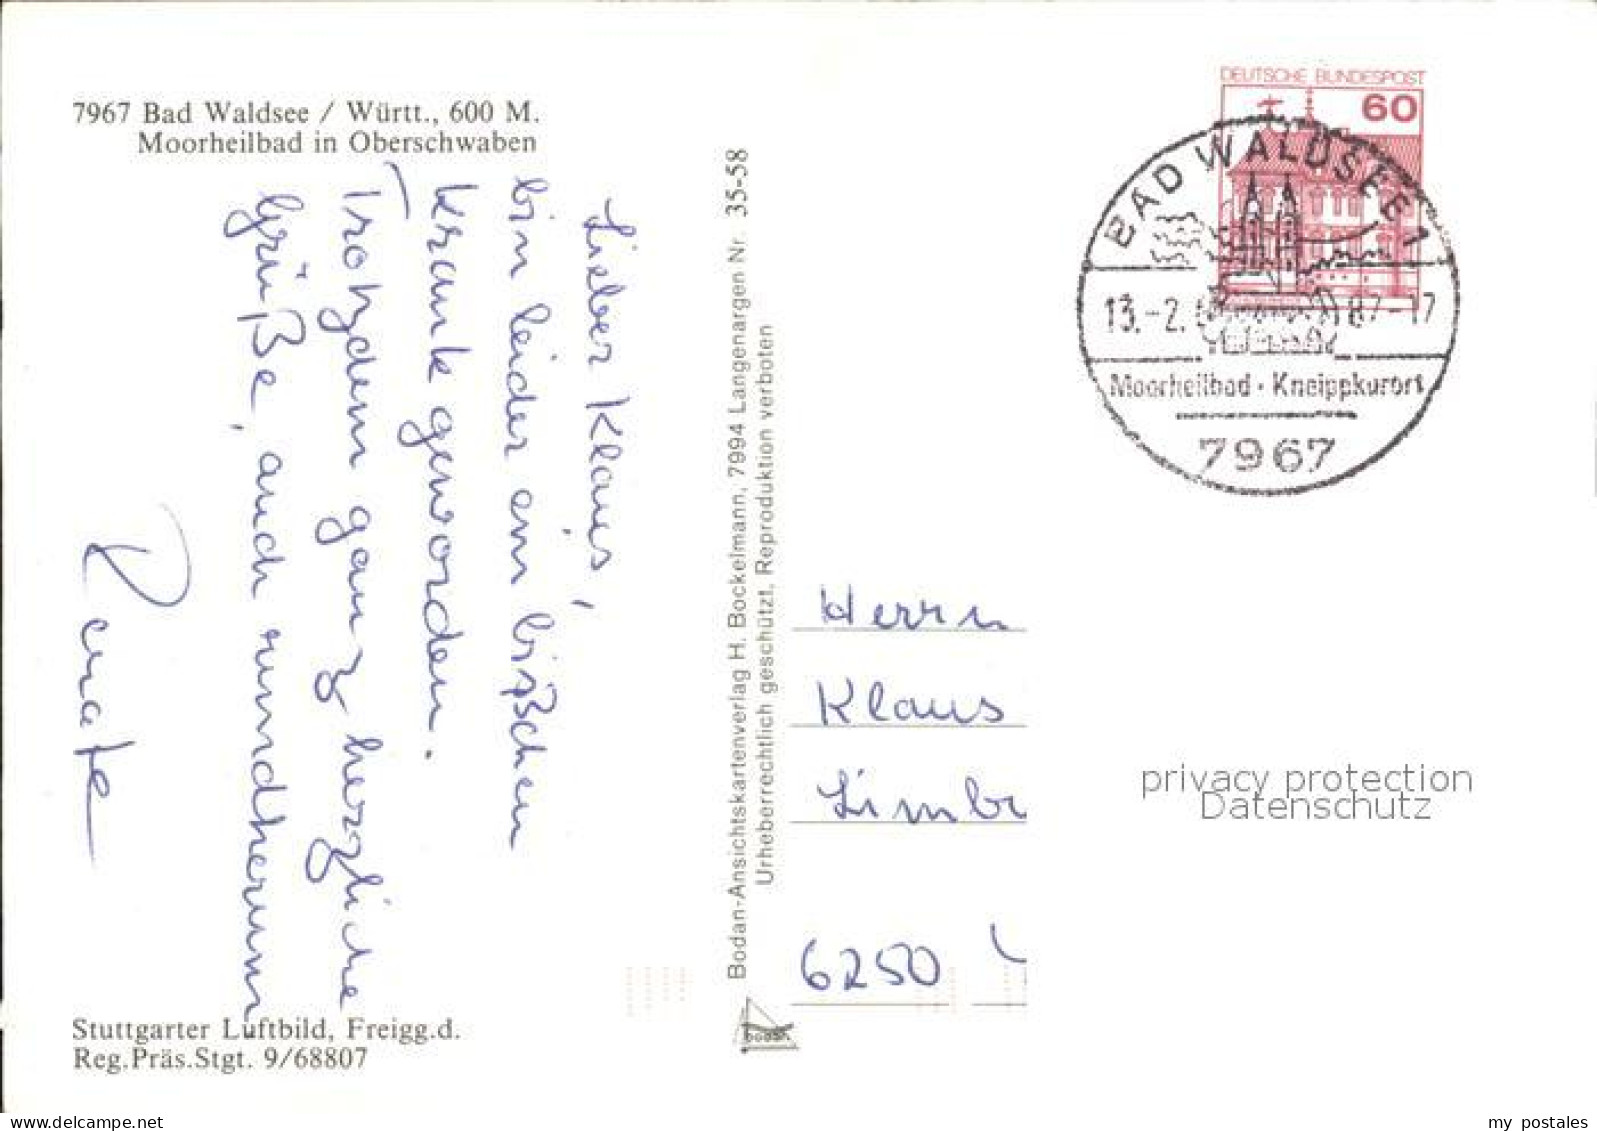 7967 Bad Waldsee / Württ., 600 M.
Moorheilbad in Oberschwaben
Lieber Klaus,
bin leider ein bißchen
krank geworden.
Trotzdem ganz herzliche
Grüße, auch rundherum
Renate
Stuttgarter Luftbild, Freigg.d.
Reg.Präs.Stgt. 9/68807
Bodan-Ansichtskartenverlag H. Bockelmann, 7994 Langenargen Nr. 35-58
Urheberrechtlich geschützt. Reproduktion verboten
BODAN
DEUTSCHE BUNDESPOST
60
BAD WALDSEE 1
13.-2. 87-17
Moorheilbad · Kneippkurort
7967
Herrn
Klaus
Limbr
6250
privacy protection
Datenschutz
delcampe.net
my_postales